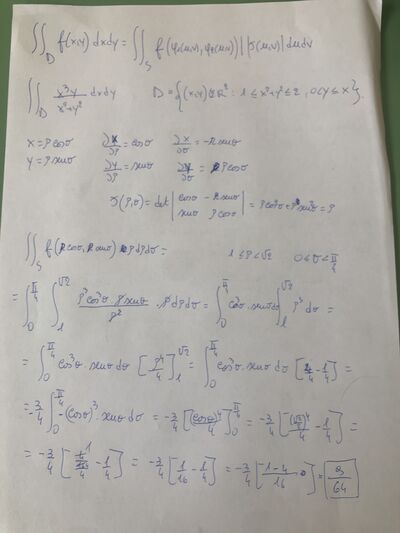 ∬_D f(x,y) dxdy = ∬_S f(φ₁(u,v), φ₂(u,v)) |J(u,v)| dudv
∬_D x³y/(x²+y²) dxdy D = {(x,y) ∈ R² : 1 ≤ x²+y² ≤ 2, 0 < y ≤ x}.
x = ρcosθ ∂x/∂ρ = cosθ ∂x/∂θ = -r senθ
y = ρ senθ ∂y/∂ρ = senθ ∂y/∂θ = ρcosθ
J(ρ,θ) = det | cosθ -r senθ | = ρcos²θ + ρ sen²θ = ρ
| senθ ρcosθ |
∬_S f(r cosθ, r senθ) ρ dρdθ = 1 ≤ ρ < √2 0 ≤ θ < π/4
= ∫_0^{π/4} ∫_1^{√2} (ρ³cos³θ · ρ senθ)/ρ² · ρ dρdθ = ∫_0^{π/4} cos³θ · senθ dθ ∫_1^{√2} ρ³ dθ =
= ∫_0^{π/4} cos³θ · senθ dθ [ρ⁴/4]_1^{√2} = ∫_0^{π/4} cos³θ · senθ dθ [4/4 - 1/4] =
= -3/4 ∫_0^{π/4} -(cosθ)³ · senθ dθ = -3/4 [(cosθ)⁴/4]_0^{π/4} = -3/4 [ - 1/4] =
= -3/4 [ - 1/4] = -3/4 [1/16 - 1/4] = -3/4 [1-4/16] = 9/64